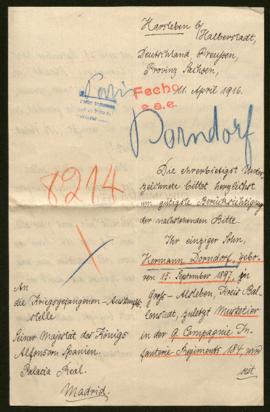 Harsleben b/
Halberstadt,
Deutschland, Preußen,
Provinz Sachsen,
11. April 1916.
Paris
Fecho
e.a.e.
Dorndorf
8214
Die ehrerbietigst Unter-
zeichnete bittet herzlichst
um gütigste Berücksichtigung
der nachstehenden Bitte.
Ihr einziger Sohn,
Hermann Dorndorf, gebo-
ren 15. September 1897, zu
Groß-Alsleben, Kreis Bal-
lenstedt, zuletzt Musketier
in der 9. Compagnie In-
fanterie Regiments 184, wird
seit
An
die Kriegsgefangenen-Auskunfts-
stelle
Seiner Majestät des Königs
Alfons von Spanien.
Palacio Real.
Madrid.